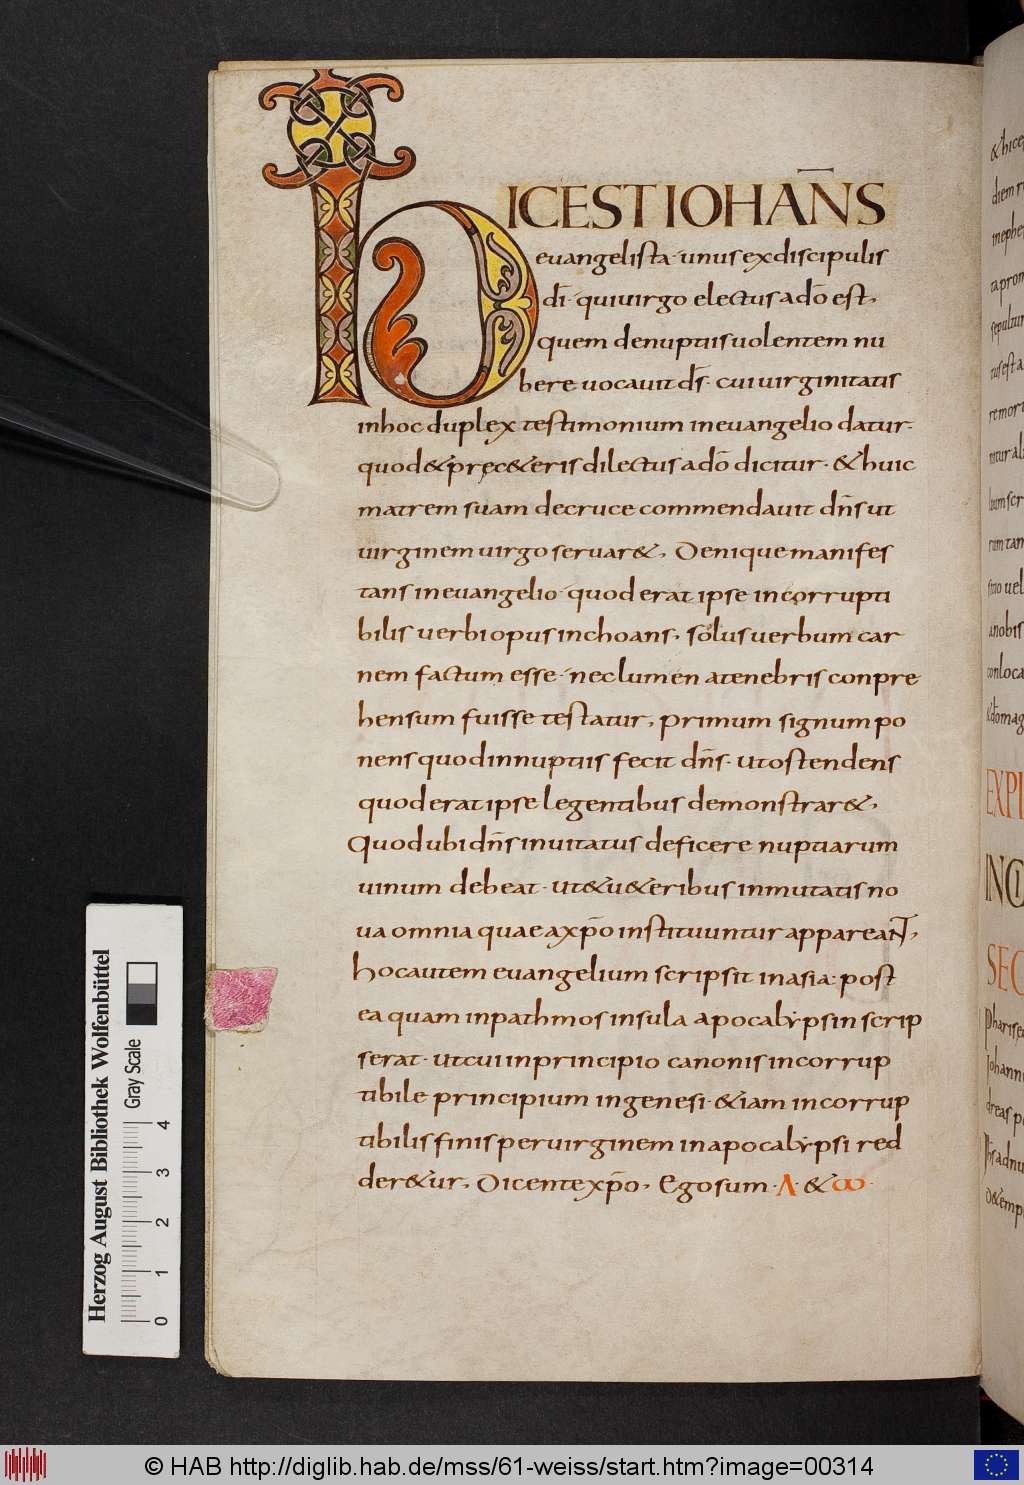 HICEST IOHAN̄NS
euangelista· unus ex discipulis
dī· qui uirgo electus ad̄o est,
quem denuptiis uolentem nu
bere uocauit dīs· cui uirginitatis
inhoc duplex testimonium ineuangelio datur·
quod & pręc&eris dilectus ad̄o dicitur· & huic
matrem suam decruce commendauit dn̄s ut
uirginem uirgo seruar&, Denique manifes
tans ineuangelio· quod erat ipse incorrupti
bilis uerbi opus inchoans, solus uerbum car
nem factum esse· nec lumen atenebris conpre
hensum fuisse testatur, primum signum po
nens quod innuptiis fecit dn̄s· utostendens
quod erat ipse legentibus demonstrar&,
Quod ubi dn̄s inuitatus deficere nuptiarum
uinum debeat· ut & u&eribus inmutatis no
ua omnia quae axp̄o instituuntur appareant,
hoc autem euangelium scripsit inasia: post
ea quam inpathmos insula apocalẏpsin scrip
serat· ut cui inprincipio canonis incorrup
tibile principium ingenesi· & iam incorrup
tibilis finis per uirginem inapocalẏpsi red
der&ur, Dicente xp̄o, Ego sum· Λ· & ω·
&hice
diem r
inephe
ta pron
sepultur
tus est a
remort
nitur al
luum scr
rum tam
stio uel
anobis
conloca
EXPL
INCI
SEC
Pharise
Iohann
dreas p
adnu
Herzog August Bibliothek Wolfenbüttel
Gray Scale
0 1 2 3 4
© HAB http://diglib.hab.de/mss/61-weiss/start.htm?image=00314